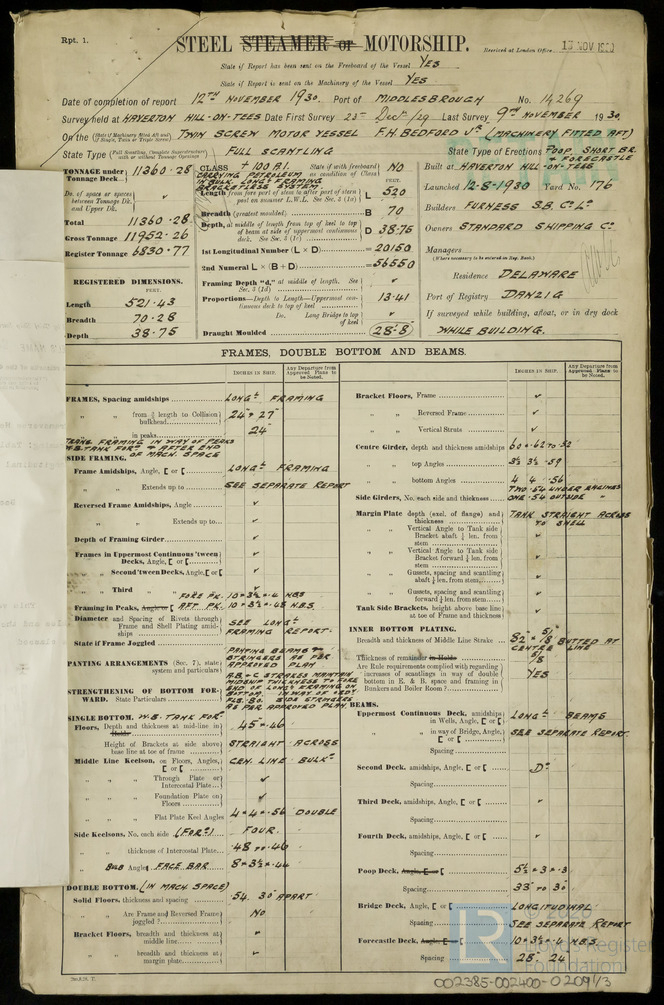 Rpt. 1.
STEEL STEAMER or MOTORSHIP.
Received at London Office 13 NOV 1930
State if Report has been sent on the Freeboard of the Vessel YES
State if Report is sent on the Machinery of the Vessel YES
Date of completion of report 12TH NOVEMBER 1930. Port of MIDDLESBROUGH No. 14269
Survey held at HAVERTON HILL-ON-TEES Date First Survey 23rd Decr/29 Last Survey 9TH NOVEMBER 1930.
On the (State if Machinery fitted Aft and if Single, Twin or Triple Screw) TWIN SCREW MOTOR VESSEL F.H. BEDFORD JR (MACHINERY FITTED AFT)
State Type FULL SCANTLING State Type of Erections POOP, SHORT BR. & FORECASTLE
TONNAGE under Tonnage Deck 11360.28
Do. of space or spaces between Tonnage Dk. and Upper Dk.
Total 11360.28
Gross Tonnage 11952.26
Register Tonnage 6830.77
REGISTERED DIMENSIONS.
FEET.
Length 521.43
Breadth 70.28
Depth 38.75
CLASS + 100 A.1. State if with freeboard as condition of Class NO
CARRYING PETROLEUM IN BULK. LONGL FRAMING
BRACKETLESS SYSTEM
Length from fore part of stem to after part of stern post on summer L.W.L. See Sec. 3 (1a) L 520
Breadth (greatest moulded) B 70
Depth, at middle of length from top of keel to top of beam at side of uppermost continuous deck. See Sec. 3 (1c) D 38.75
1st Longitudinal Number (L × D) = 20150
2nd Numeral L × (B + D) = 56550
Framing Depth "d," at middle of length. See Sec. 3 (1d)
Proportions—Depth to Length—Uppermost continuous deck to top of keel 13.41
Do. Long Bridge to top of keel
Draught Moulded 28.8
Built at HAVERTON HILL-ON-TEES
Launched 12-8-1930 Yard No. 176
Builders FURNESS S.B. Co. Ld
Owners STANDARD SHIPPING Co.
Managers
(Where necessary to be entered in Reg. Book.)
Residence DELAWARE
Port of Registry DANZIG
If surveyed while building, afloat, or in dry dock
WHILE BUILDING.
FRAMES, DOUBLE BOTTOM AND BEAMS.
INCHES IN SHIP.
Any Departure from Approved Plans to be Noted.
FRAMES, Spacing amidships LONGL FRAMING
" " from ⅗ length to Collision bulkhead 24" & 27"
" " in peaks 24"
TRANS. FRAMING IN WAY OF PEAKS
W.B. TANK FORD & AFTER END OF MACH. SPACE
SIDE FRAMING.
Frame Amidships, Angle, [ or [ LONGL FRAMING
" " Extends up to SEE SEPARATE REPORT
Reversed Frame Amidships, Angle
" " Extends up to
Depth of Framing Girder
Frames in Uppermost Continuous 'tween Decks, Angle, [ or [
" Second 'tween Decks, Angle, [ or [
" Third " "
FORE PK. 10 × 3½ × .4 N.B.S
Framing in Peaks, Angle or [ AFT PK. 10 × 3½ × .45 N.B.S.
Diameter and Spacing of Rivets through Frame and Shell Plating amidships SEE LONGL FRAMING REPORT.
State if Frame Joggled
PANTING ARRANGEMENTS (Sec. 7), state system and particulars PANTING BEAMS & STRINGERS AS PER APPROVED PLAN
STRENGTHENING OF BOTTOM FORWARD. State Particulars
SINGLE BOTTOM. W.B. TANK FORD
Floors, Depth and thickness at mid-line in Holds 45 × .46
Height of Brackets at side above base line at toe of frame STRAIGHT ACROSS
Middle Line Keelson, on Floors, Angles, [ or [ CEN. LINE BULKD
" " Through Plate or Intercostal Plate
" " Foundation Plate on Floors
" " Flat Plate Keel Angles 4 × 4 × .56 DOUBLE
Side Keelsons, No. each side (FORD) FOUR.
" " thickness of Intercostal Plate .48 TO .46
" " Bulb Angle FACE BAR 8 × 3½ × .44
DOUBLE BOTTOM. (IN MACH. SPACE)
Solid Floors, thickness and spacing .54. 30" APART
" " Are Frame and Reversed Frame joggled? NO
Bracket Floors, breadth and thickness at middle line
" " breadth and thickness at margin plate
Bracket Floors, Frame
" " Reversed Frame
" " Vertical Struts
Centre Girder, depth and thickness amidships 60 × .62 TO .52
" " top Angles 3½ 3½ .59
" " bottom Angles 4 4 .56
Side Girders, No. each side and thickness TWO .54 UNDER ENGINES ONE .54 OUTSIDE "
Margin Plate depth (excl. of flange) and thickness TANK STRAIGHT ACROSS TO SHELL
" " Vertical Angle to Tank side Bracket abaft ¼ len. from stem
" " Vertical Angle to Tank side Bracket forward ¼ len. from stem
" " Gussets, spacing and scantling abaft ¼ len. from stem
" " Gussets, spacing and scantling forward ¼ len. from stem
Tank Side Brackets, height above base line at toe of Frame and thickness
INNER BOTTOM PLATING.
Breadth and thickness of Middle Line Strake BUTTED AT CENTRE LINE
Thickness of remainder in Holds
Are Rule requirements complied with regarding increases of scantlings in way of double bottom in E. & B. space and framing in Bunkers and Boiler Room? YES
BEAMS.
Uppermost Continuous Deck, amidships in Wells, Angle, [ or [ LONGL BEAMS
" " in way of Bridge, Angle, [ or [ SEE SEPARATE REPORT
Spacing
Second Deck, amidships, Angle, [ or [ Do
Spacing
Third Deck, amidships, Angle, [ or [
Spacing
Fourth Deck, amidships, Angle, [ or [
Spacing
Poop Deck, Angle, [ or [ 5½ × 3 × .3
Spacing 33" TO 30"
Bridge Deck, Angle, [ or [ LONGITUDINAL
Spacing SEE SEPARATE REPORT
Forecastle Deck, Angle, [ or [ 10 × 3½ × .4 N.B.S.
Spacing 28" 24"
© 2020
Lloyd's Register
Foundation
002385-002400-0209 1/3